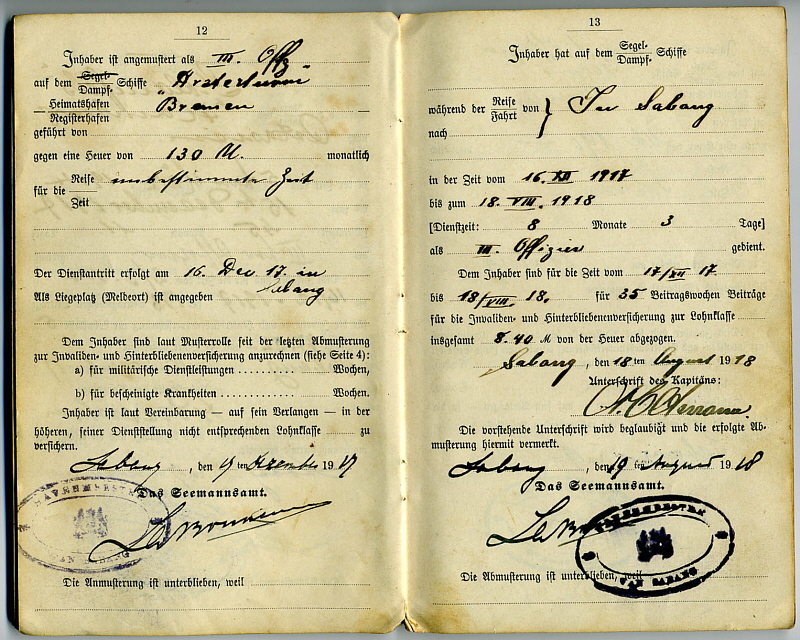 12
Inhaber ist angemustert als III. Offz
auf dem Segel- Dampf- Schiffe "Arsterturm"
Heimatshafen Bremen
Registerhafen
geführt von
gegen eine Heuer von 130 M. monatlich
für die Reise unbestimmte Zeit
Zeit
Der Dienstantritt erfolgt am 16. Dec 17. in
Als Liegeplatz (Meldeort) ist angegeben Sabang
Dem Inhaber sind laut Musterrolle seit der letzten Abmusterung
zur Invaliden- und Hinterbliebenenversicherung anzurechnen (siehe Seite 4):
a) für militärische Dienstleistungen .......... Wochen,
b) für bescheinigte Krankheiten .......... Wochen.
Inhaber ist laut Vereinbarung — auf sein Verlangen — in der
höheren, seiner Dienststellung nicht entsprechenden Lohnklasse zu
versichern.
Sabang, den 19 ten Dezember 1917
Das Seemannsamt.
HAVENMEESTER
VAN SABANG
Die Anmusterung ist unterblieben, weil
13
Inhaber hat auf dem Segel- Dampf- Schiffe
während der Reise Fahrt von } In Sabang
nach
in der Zeit vom 16. XII 1917
bis zum 18. VIII. 1918
[Dienstzeit: 8 Monate 3 Tage]
als III. Offizier gedient.
Dem Inhaber sind für die Zeit vom 17/XII 17
bis 18/VIII. 18. für 35 Beitragswochen Beiträge
für die Invaliden- und Hinterbliebenenversicherung zur Lohnklasse
insgesamt 8.40 M von der Heuer abgezogen.
Sabang, den 18 ten August 1918
Unterschrift des Kapitäns:
Die vorstehende Unterschrift wird beglaubigt und die erfolgte Ab-
musterung hiermit vermerkt.
Sabang, den 19 ten August 1918
Das Seemannsamt.
HAVENMEESTER
VAN SABANG
Die Abmusterung ist unterblieben, weil